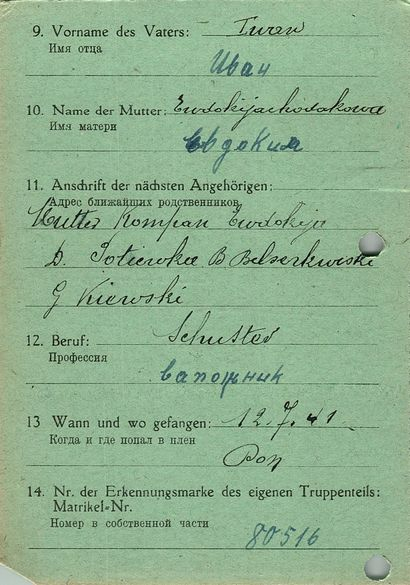 9. Vorname des Vaters: Iwen
Имя отца
Иван
10. Name der Mutter: Ewdokijachodakowa
Имя матери
Евдокия
11. Anschrift der nächsten Angehörigen:
Адрес ближайших родственников
Mutter Kompan Ewdokija
D. Sotiewka B Belserkwiski
G Kiewski
12. Beruf: Schuster
Профессия
сапожник
13 Wann und wo gefangen: 12.7.41
Когда и где попал в плен
14. Nr. der Erkennungsmarke des eigenen Truppenteils:
Matrikel=Nr.
Номер в собственной части
80516